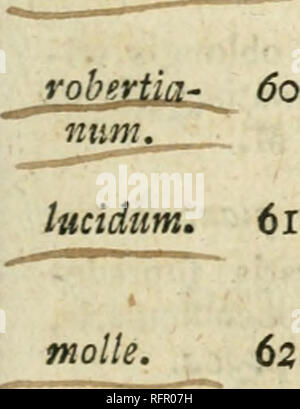 robertia- 60
num.
lucidum. 61
molle. 62
RFR07H